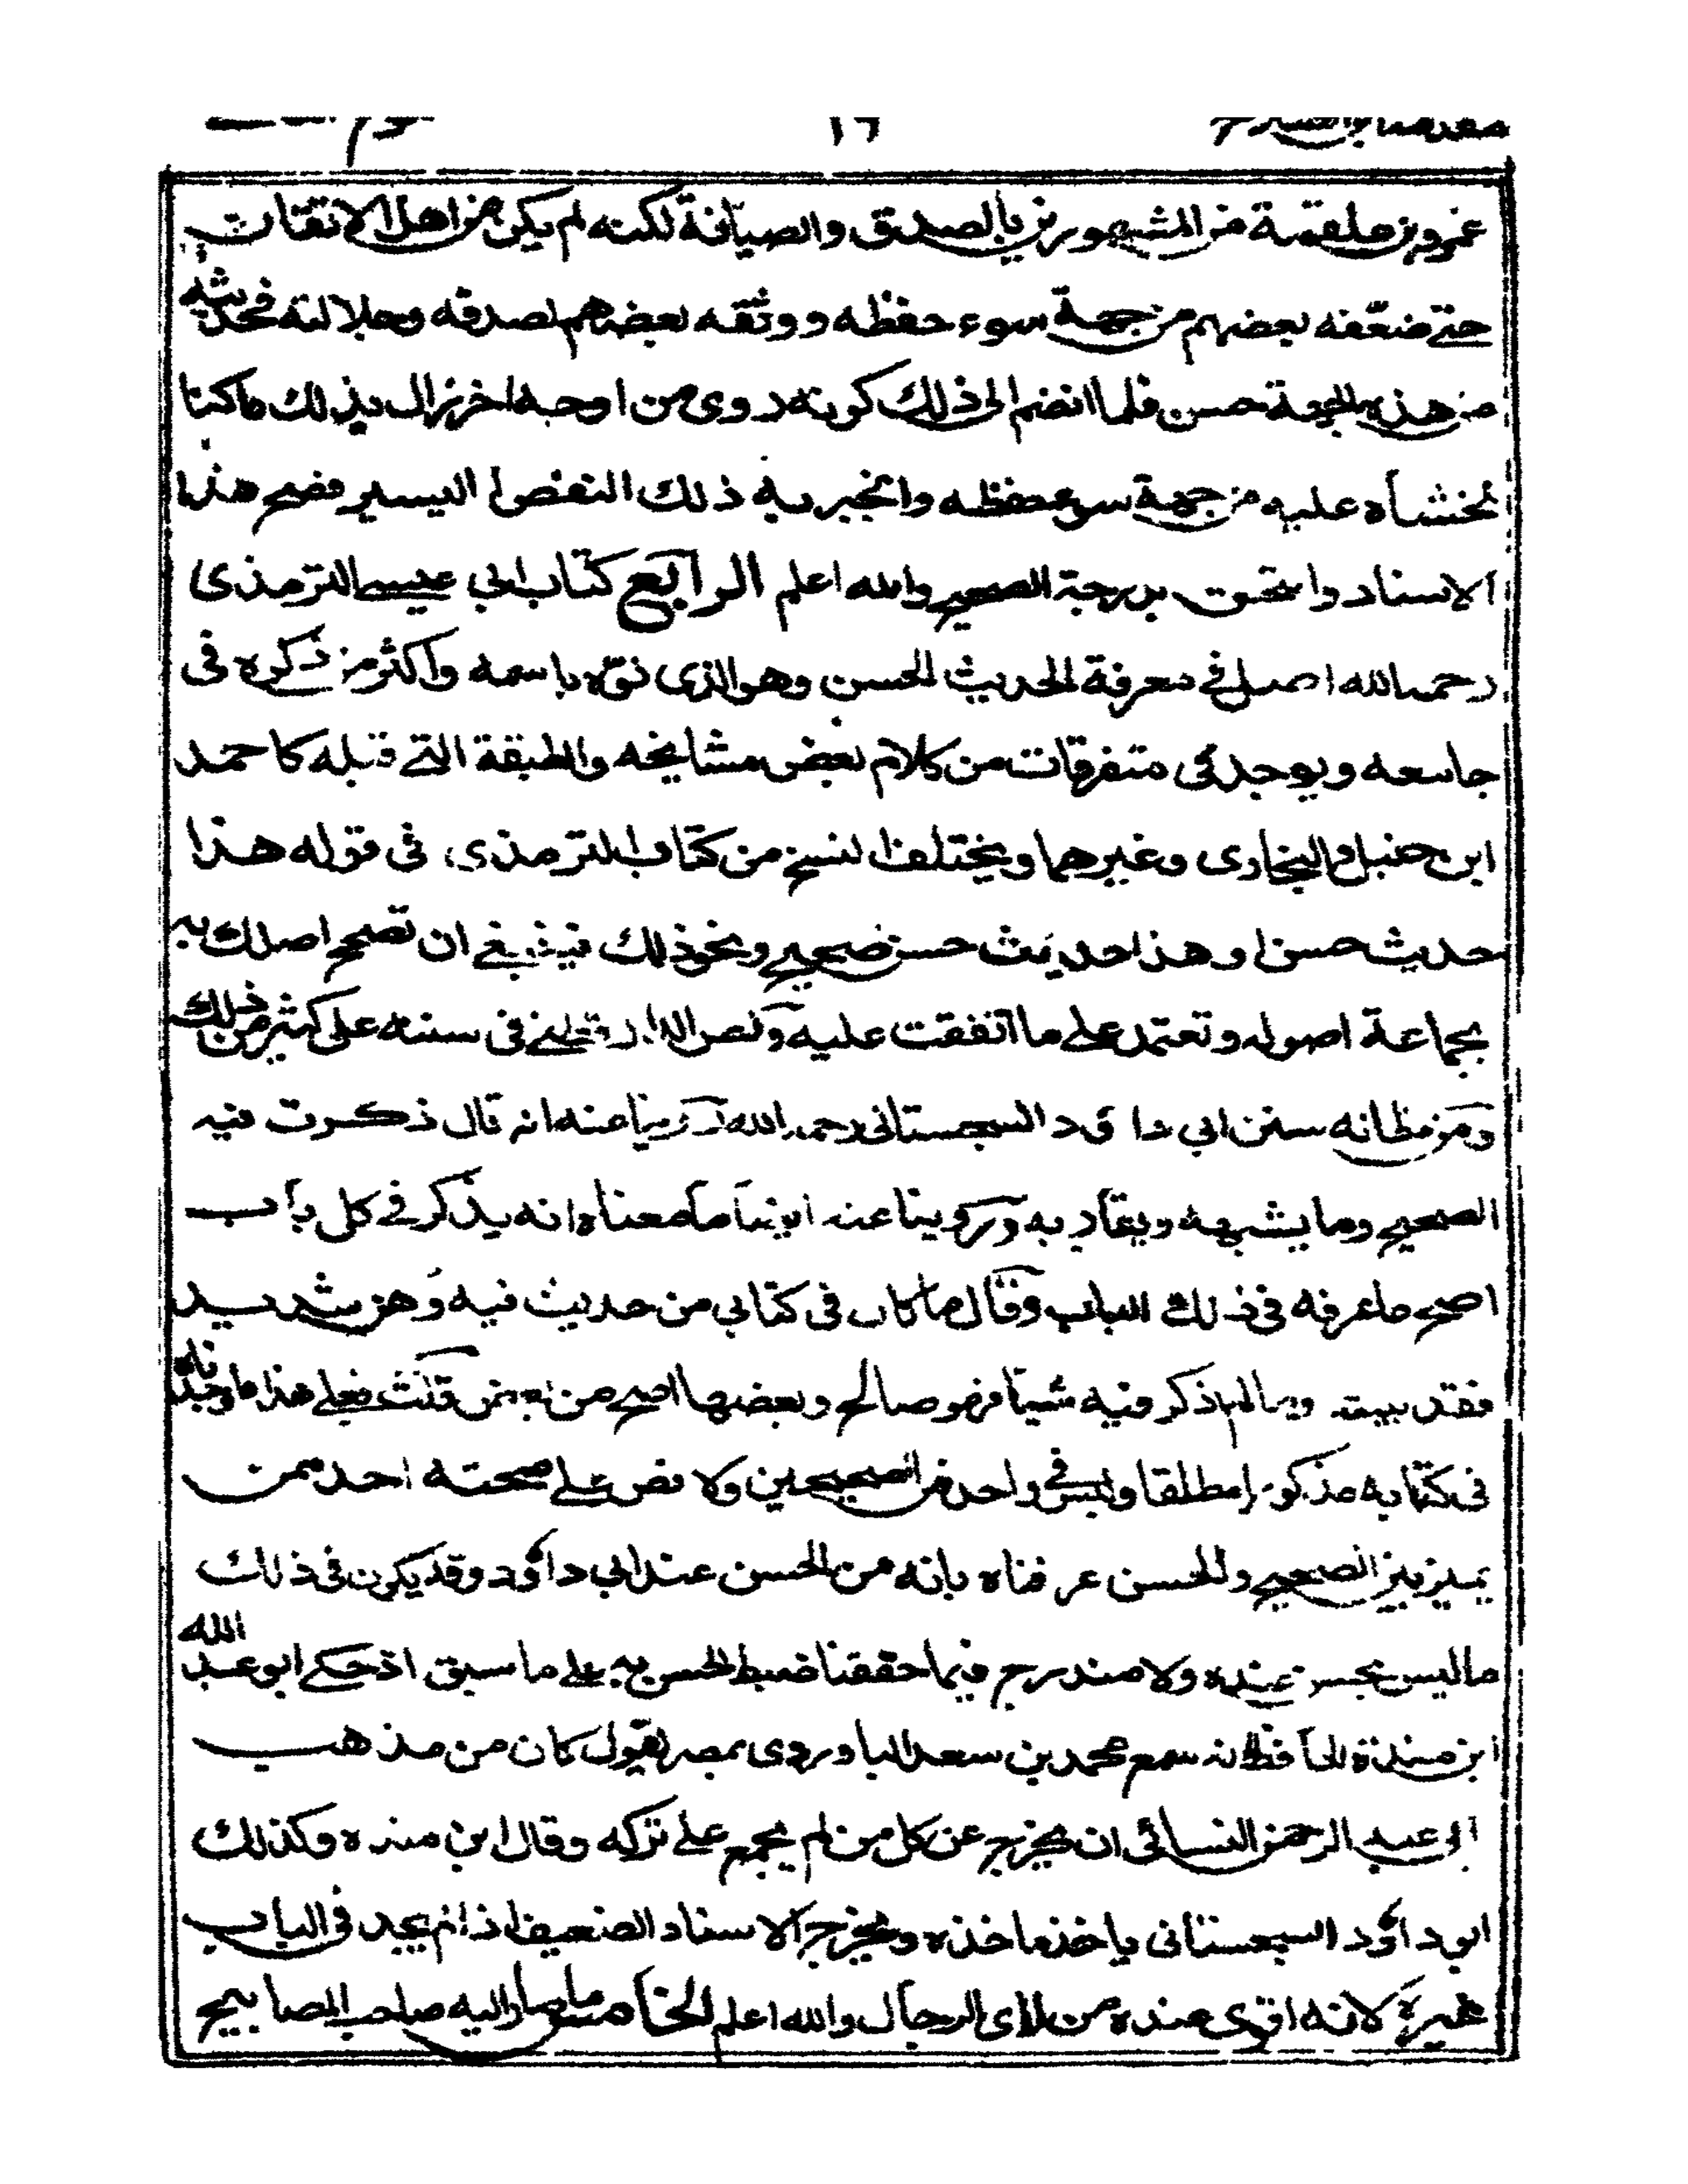 ١٦
عمرو بن علقمة من المشهورين بالصدق والصيانة لكنه لم يكن من اهل الاتقان
حتى ضعّفه بعضهم من جهة سوء حفظه ووثقه بعضهم لصدقه وجلالته فحديثه
من هذه الجهة حسن فلما انضم الى ذلك كونه روى من اوجه اخر زال بذلك ما كنا
نخشاه عليه من جهة سوء حفظه وانجبر به ذلك النقص اليسير فصح هذا
الاسناد والتحق بدرجة الصحيح والله اعلم الرابع كتاب ابى عيسى الترمذى
رحمه الله اصل فى معرفة الحديث الحسن وهو الذى نوّه باسمه واكثر من ذكره فى
جامعه ويوجد فى متفرقات من كلام بعض مشايخه والطبقة التى قبله كاحمد
ابن حنبل والبخارى وغيرهما ويختلف النسخ من كتاب الترمذى فى قوله هذا
حديث حسن او هذا حديث حسن صحيح ونحو ذلك فينبغى ان تصحح اصلك به
بجماعة اصول وتعتمد على ما اتفقت عليه ونص الدارقطنى فى سننه على كثير من ذلك
ومن مظانه سنن ابى داؤد السجستانى رحمه الله روينا عنه انه قال ذكرت فيه
الصحيح وما يشبهه ويقاربه وروينا عنه ايضا ما معناه انه يذكر فى كل باب
اصح ما عرفه فى ذلك الباب وقال ما كان فى كتابى من حديث فيه وهن شديد
فقد بينته وما لم اذكر فيه شيئا فهو صالح وبعضها اصح من بعض قلت فعلى هذا ما وجدناه
فى كتابه مذكورا مطلقا وليس فى واحد من الصحيحين ولا نص على صحته احد ممن
يميز بين الصحيح والحسن عرفناه بانه من الحسن عند ابى داؤد وقد يكون فى ذلك
ما ليس بحسن عنده ولا مندرج فيما حققنا ضبط الحسن به على ما سبق اذ حكى ابو عبد الله
ابن مندة الحافظ انه سمع محمد بن سعد الباوردى بمصر يقول كان من مذهب
ابى عبد الرحمن النسائى ان يخرج عن كل من لم يجمع على تركه وقال ابن منده وكذلك
ابو داؤد السجستانى ياخذ ماخذه ويخرج الاسناد الضعيف اذا لم يجد فى الباب
غيره لانه اقوى عنده من راى الرجال والله اعلم الخامس ما صار اليه صاحب المصابيح